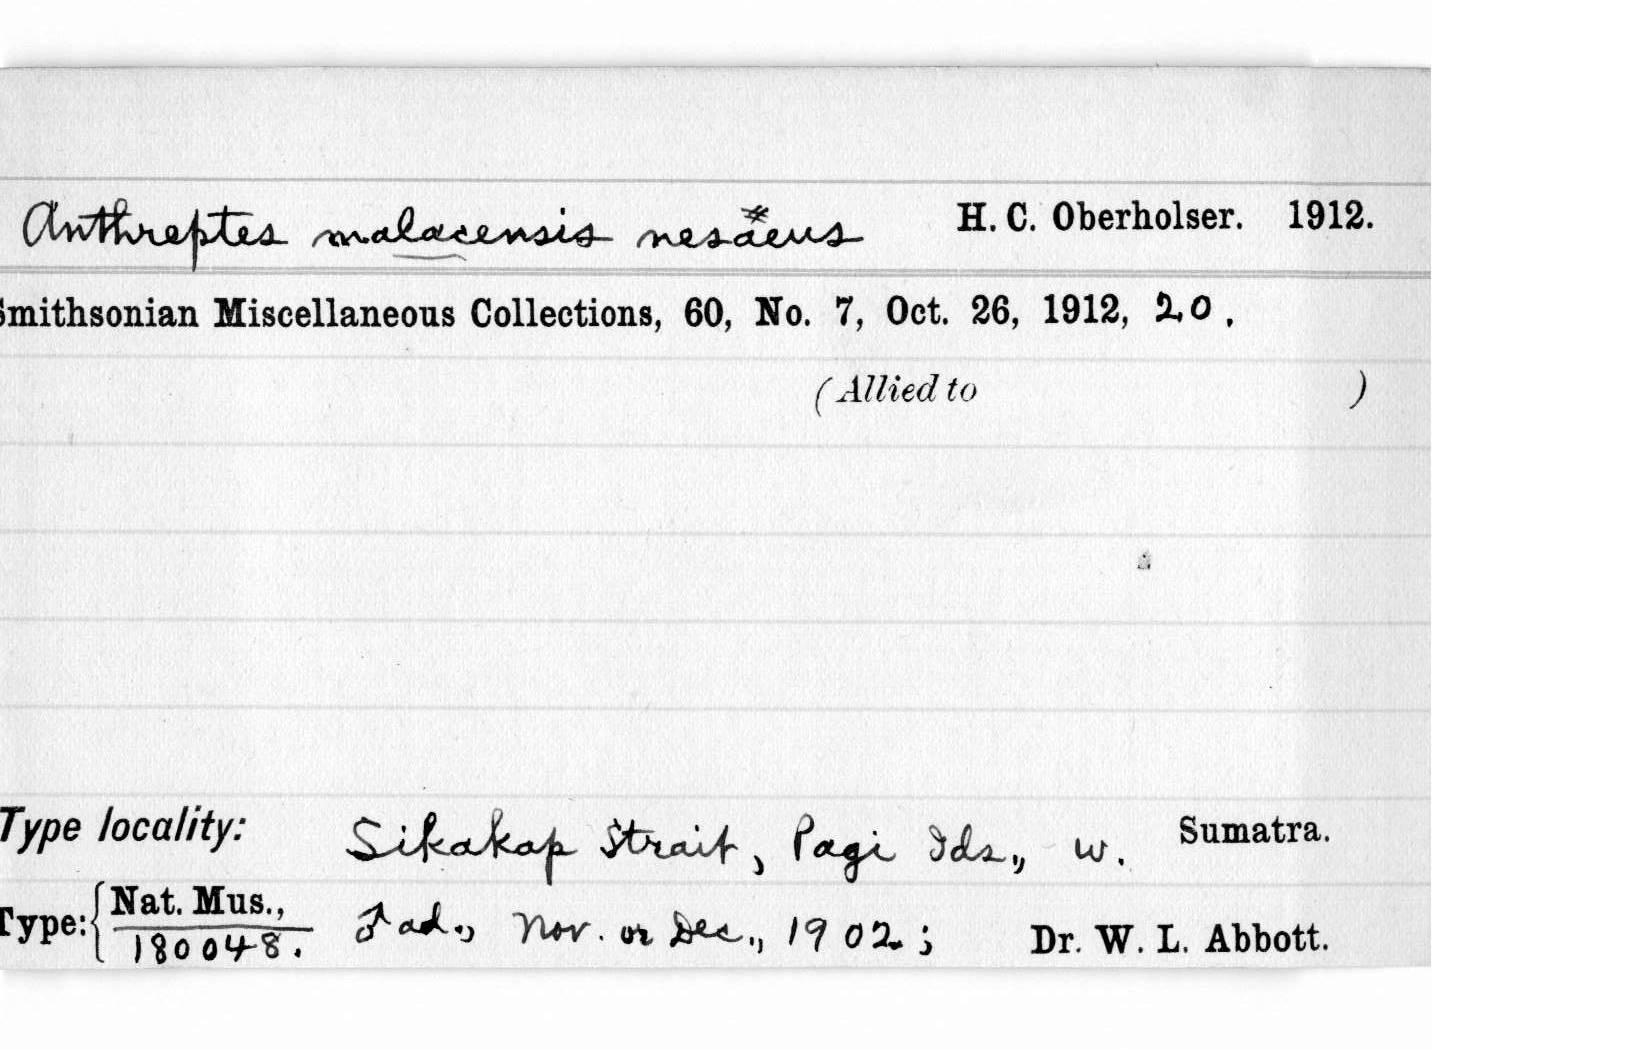 Anthreptes malacensis nesæus* H. C. Oberholser. 1912.
Smithsonian Miscellaneous Collections, 60, No. 7, Oct. 26, 1912, 20.
(Allied to )
Type locality: Sikakap Strait, Pagi Ids., w. Sumatra.
Type: { Nat. Mus., ♂ ad., Nov. or Dec., 1902; Dr. W. L. Abbott.
180048.